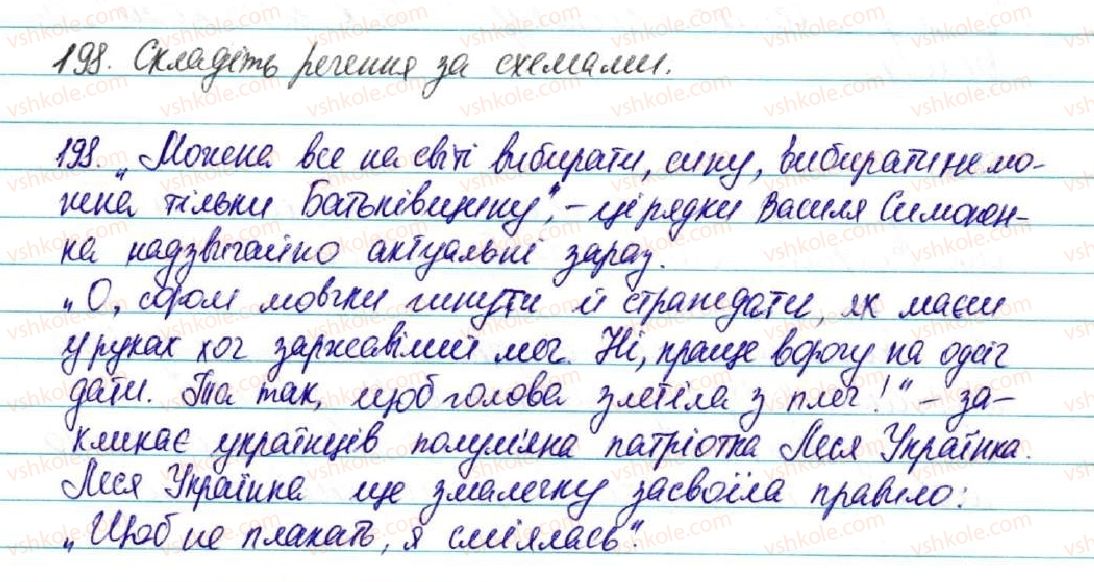 198. Складіть речення за схемами.
198. „Можна все на світі вибирати, сину, вибрати не мо-
жна тільки Батьківщину", – ці рядки Василя Симонен-
ка надзвичайно актуальні зараз.
„О, сором мовчки гинути й страждати, як маєм
у руках хоч заржавілий меч. Ні, краще ворогу на одсіч
дати. Та так, щоб голова злетіла з плеч!" – за-
кликає українців полум'яна патріотка Леся Українка.
Леся Українка ще змалечку засвоїла правило:
„Щоб не плакать, я сміялась".